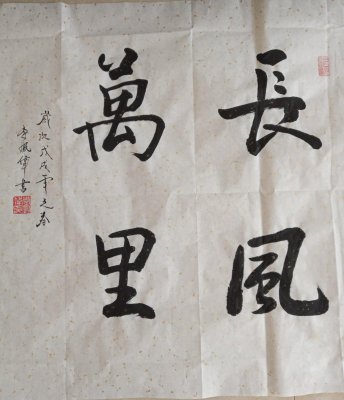 長風
萬里
歲次戊戌年之春
李佩偉書